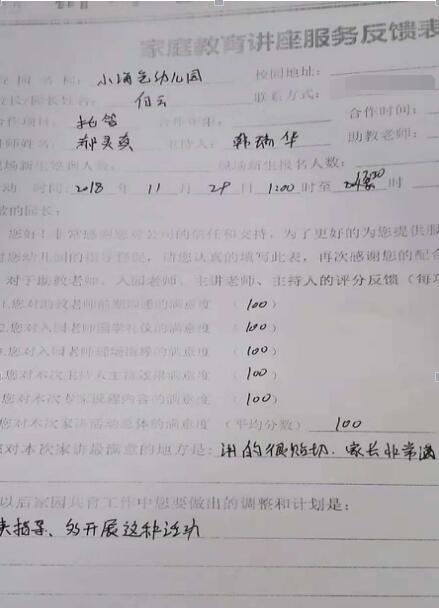 家庭教育讲座服务反馈表
园名称：小海龟幼儿园 校园地址：
长/园长姓名：付云 联系方式：
合作项目：托管 合作年限： 合作时间：
讲师姓名：郝灵爽 主持人：韩瑞华 助教老师：
现场新生签到人数： 现场新生报名人数：
活动时间：2018年11月29日1:00时至 时
敬的园长：
您好！非常感谢您对公司的信任和支持，为了更好的为您提供服
对您幼儿园的指导督促，请您认真的填写此表，再次感谢您的配合
对于助教老师、入园老师、主讲老师、主持人的评分反馈（每项
1.您对助教老师前期沟通的满意度（100）
2.您对入园老师园掌礼仪的满意度（100）
3.您对入园老师现场指导的满意度（100）
您对本次主持人主持效果满意度（100）
您对本次专家授课内容的满意度（100）
您对本次家讲活动总体的满意度（平均分数）100
您对本次家讲最满意的地方是：讲的很贴切，家长非常满
以后家园共育工作中您要做出的调整和计划是：
指导、多开展这种活动